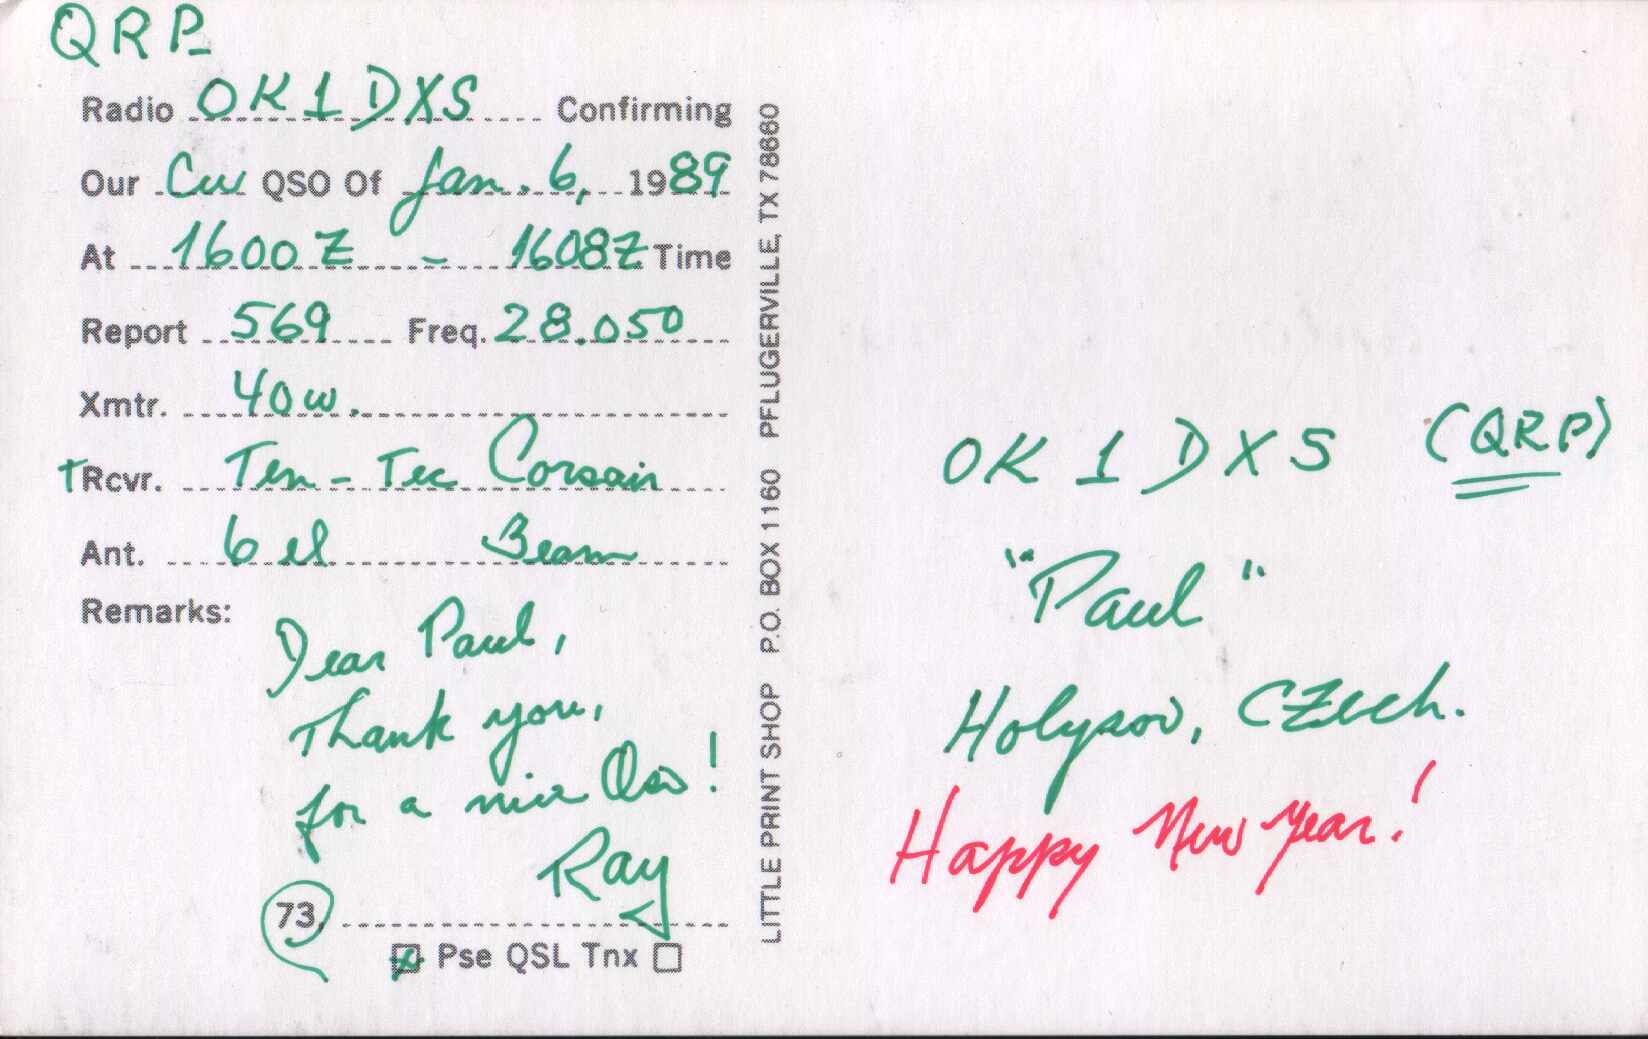 QRP
Radio OK1DXS Confirming
Our Cw QSO Of Jan. 6, 1989
At 1600Z - 1608Z Time
Report 569 Freq. 28.050
Xmtr. 40w.
TRcvr. Ten-Tec Corsair
Ant. 6 el Beam
Remarks:
Dear Paul,
Thank you,
for a nice Qso!
Ray
73,
☒ Pse QSL Tnx ☐
LITTLE PRINT SHOP P.O. BOX 1160 PFLUGERVILLE, TX 78660
OK1DXS (QRP)
"Paul"
Holysov, CZech.
Happy New Year!